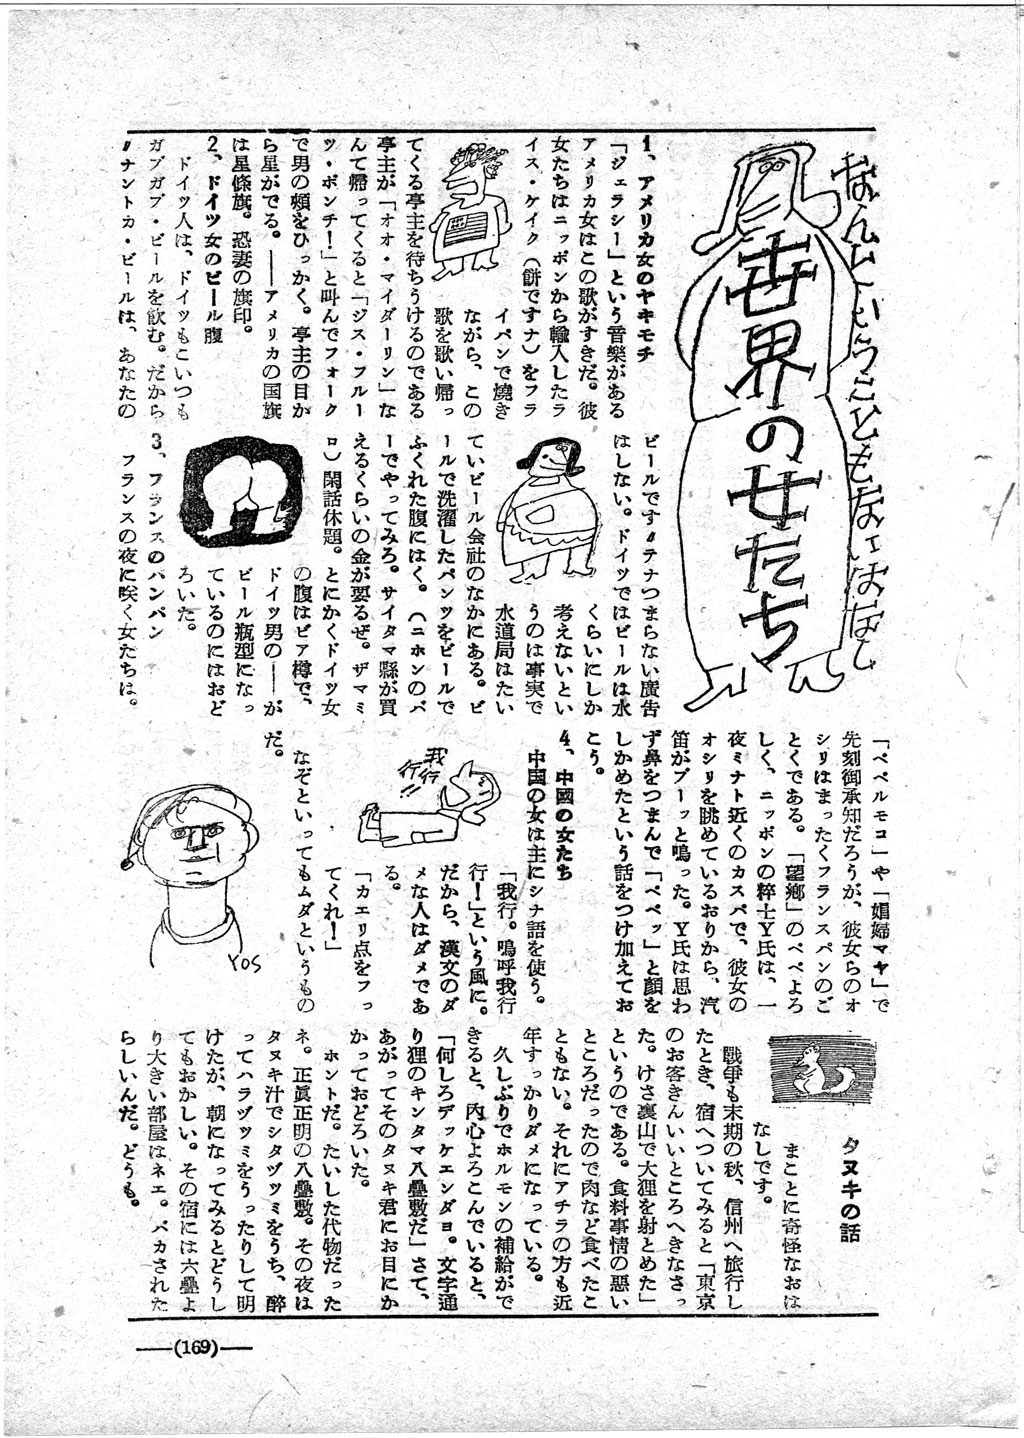 なんということもないはなし
世界の女たち
1、アメリカ女のヤキモチ
「ジェラシー」という音樂がある
アメリカ女はこの歌がすきだ。彼
女たちはニッポンから輸入したラ
イス・ケイク（餅ですナ）をフラ
イパンで燒き
ながら、この
歌を歌い帰っ
てくる亭主を待ちうけるのである
亭主が「オオ・マイダーリン」な
んて帰ってくると「ジス・フルー
ツ・ポンチ！」と叫んでフォーク
で男の頰をひっかく。亭主の目か
ら星がでる。――アメリカの国旗
は星條旗。恐妻の旗印。
2、ドイツ女のビール腹
ドイツ人は、ドイツもこいつも
ガブガブ・ビールを飲む。だから
〃ナントカ・ビールは、あなたの
ビールです〃テナつまらない廣告
はしない。ドイツではビールは水
くらいにしか
考えないとい
うのは事実で
水道局はたい
ていビール会社のなかにある。ビ
ールで洗濯したパンツをビールで
ふくれた腹にはく。（ニホンのバ
ーでやってみろ。サイタマ縣が買
えるくらいの金が要るぜ。ザマミ
ロ）閑話休題。とにかくドイツ女
の腹はビア樽で、
ドイツ男の――が
ビール瓶型になっ
ているのにはおど
ろいた。
3、フランスのパンパン
フランスの夜に咲く女たちは。
「ペペルモコ」や「娼婦マヤ」で
先刻御承知だろうが、彼女らのオ
シリはまったくフランスパンのご
とくである。「望鄕」のペペよろ
しく、ニッポンの粹士Y氏は、一
夜ミナト近くのカスバで、彼女の
オシリを眺めているおりから、汽
笛がブーッと鳴った。Y氏は思わ
ず鼻をつまんで「ペペッ」と顔を
しかめたという話をつけ加えてお
こう。
4、中國の女たち
中国の女は主にシナ語を使う。
「我行。嗚呼我行
行！」という風に。
だから、漢文のダ
メな人はダメであ
る。
「カエリ点をフっ
てくれ！」
なぞといってもムダというもの
だ。
我行
行!!
YOS
タヌキの話
まことに奇怪なおは
なしです。
戰爭も末期の秋、信州へ旅行し
たとき、宿へついてみると「東京
のお客さんいいところへきなさっ
た。けさ裏山で大狸を射とめた」
というのである。食料事情の悪い
ところだったので肉など食べたこ
ともない。それにアチラの方も近
年すっかりダメになっている。
久しぶりでホルモンの補給がで
きると、内心よろこんでいると、
「何しろデッケエンダヨ。文字通
り狸のキンタマ八疊敷だ」さて、
あがってそのタヌキ君にお目にか
かっておどろいた。
ホントだ。たいした代物だった
ネ。正眞正明の八疊敷。その夜は
タヌキ汁でシタヅツミをうち、醉
ってハラヅツミをうったりして明
けたが、朝になってみるとどうし
てもおかしい。その宿には六疊よ
り大きい部屋はネエ。バカされた
らしいんだ。どうも。
――(169)――